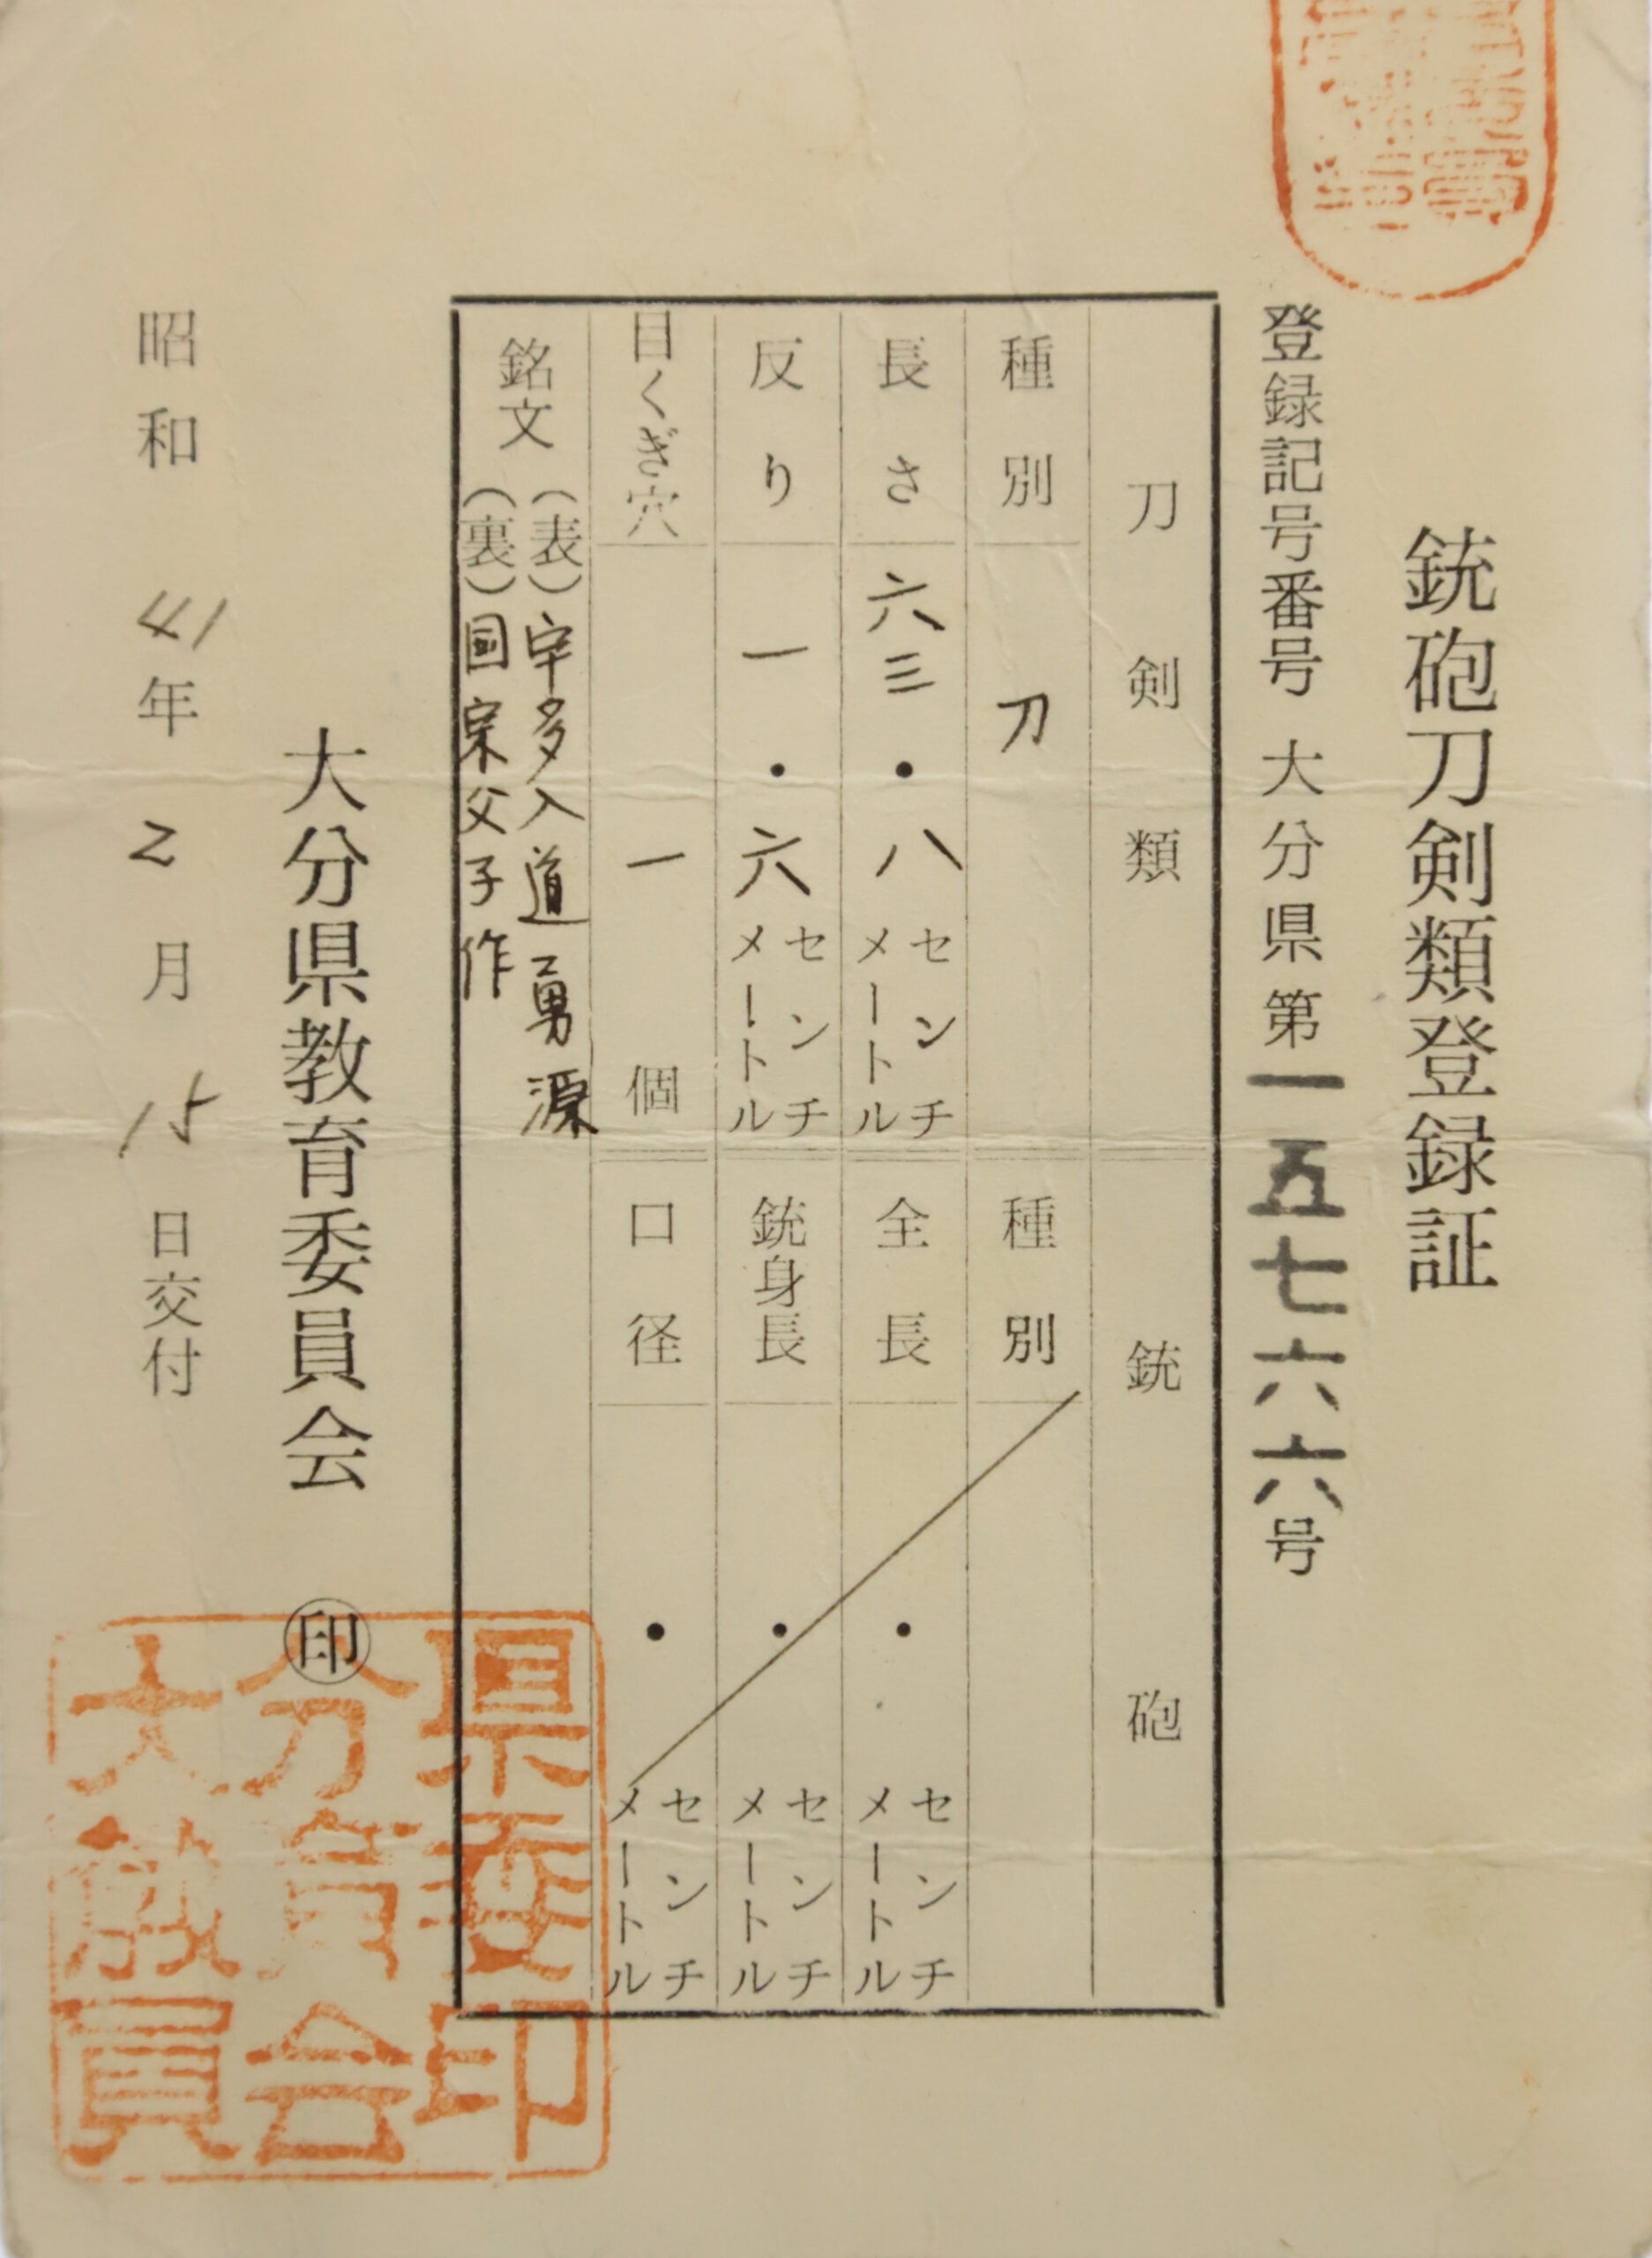 銃砲刀剣類登録証
登録記号番号 大分県第一五七六六号
刀剣類
種別 刀
長さ 六三・八 センチメートル
反り 一・六 センチメートル
目くぎ穴 一 個
銘文 (表) 宇多入道勇源
(裏) 国宗父子作
銃砲
種別
全長 ・ センチメートル
銃身長 ・ センチメートル
口径 ・ センチメートル
大分県教育委員会 ㊞
昭和41年2月15日交付